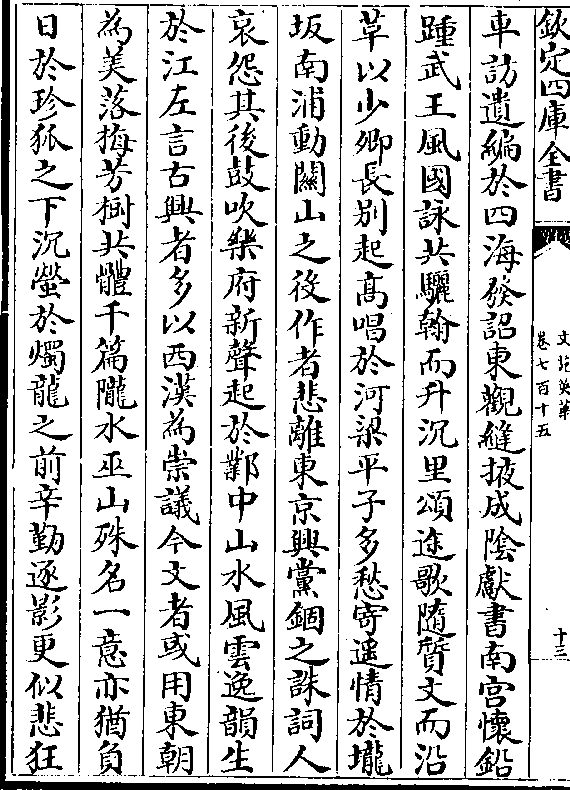 欽定四庫全書
文苑英華
卷七百十五
十三
車訪遺編於四海發詔東觀縫掖成陰獻書南宫懷鉛
踵武王風國詠共驪翰而升沉里頌途歌隨質文而沿
草以少卿長别起髙唱於河梁平子多愁寄遥情於壠
坂南浦動關山之役作者悲離東京興黨錮之誅詞人
哀怨其後鼓吹樂府新聲起於鄴中山水風雲逸韻生
於江左言古興者多以西漢為崇議今文者或用東朝
為美落梅芳樹共體千篇隴水巫山殊名一意亦猶負
日於珍狐之下沉螢於燭龍之前辛勤逐影更似悲狂